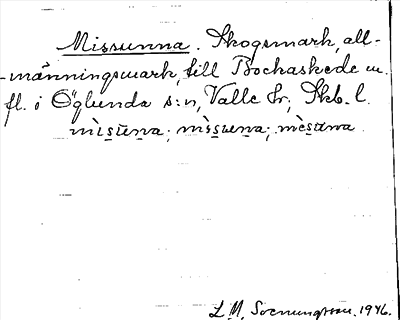 Missunna. Skogsmark, all-
-männingsmark, till Bockaskede m.
fl. i Öglunda s:n, Valle hr, Skb. l.
mìsu̲na; mìsuna; mèsuna.
L M, Svenungsson. 1946.